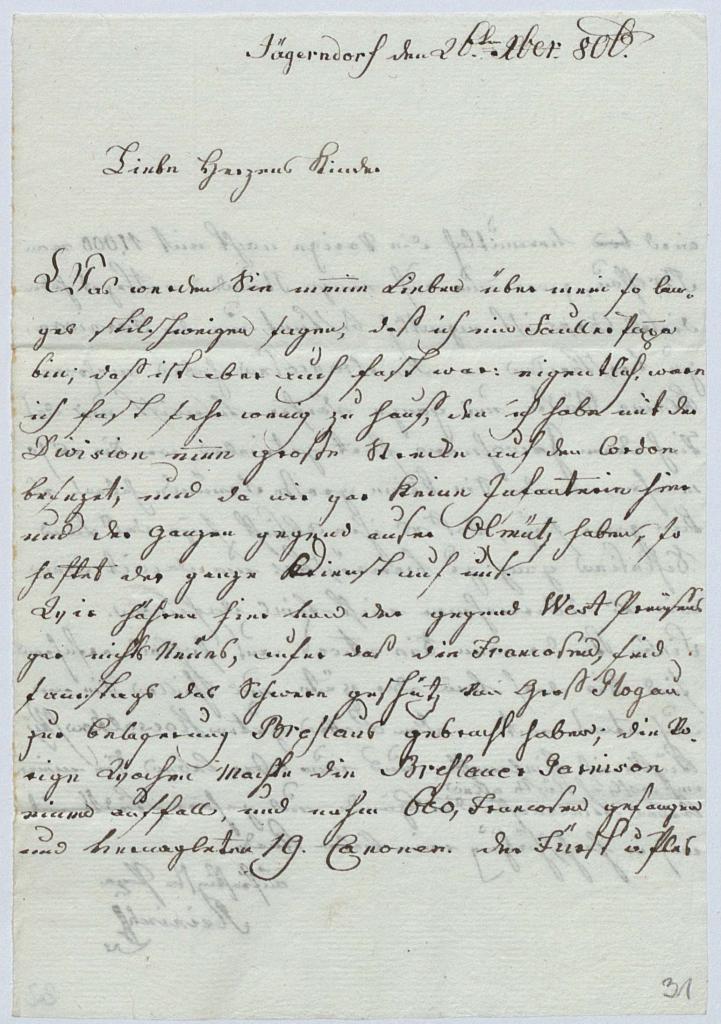 Jägerndorf den 26ten Xber. 806.
Liebe Herzens Kinder
Was werden Sie meine Lieben über mein so lan-
ges stilschweigen sagen, daß ich ein Fauller Papa
bin; daß ist aber auch fast war: eigentlich, ware
ich fast sehr wenig zu Hauß, den ich habe mit der
Division eine große Strecke auf den Cordon
besezet; und da wir gar keine Infanterie hier
und der ganzen gegend auser Olmütz haben, so
haftet der ganze dienst auf uns.
Wir hören hier von der gegend West Preüsens
gar nichts Neües, auser daß die Francosen, seid
das Schwere geschütz von Groß Glogau
zur belagerung Breslaus gebracht haben; die Vo-
rige Wochen Machte die Breslauer Garnison
einen ausfall, und nahm 600, Francosen gefangen
und vernagleten 19. Canonen. der Fürst v. Ples
31